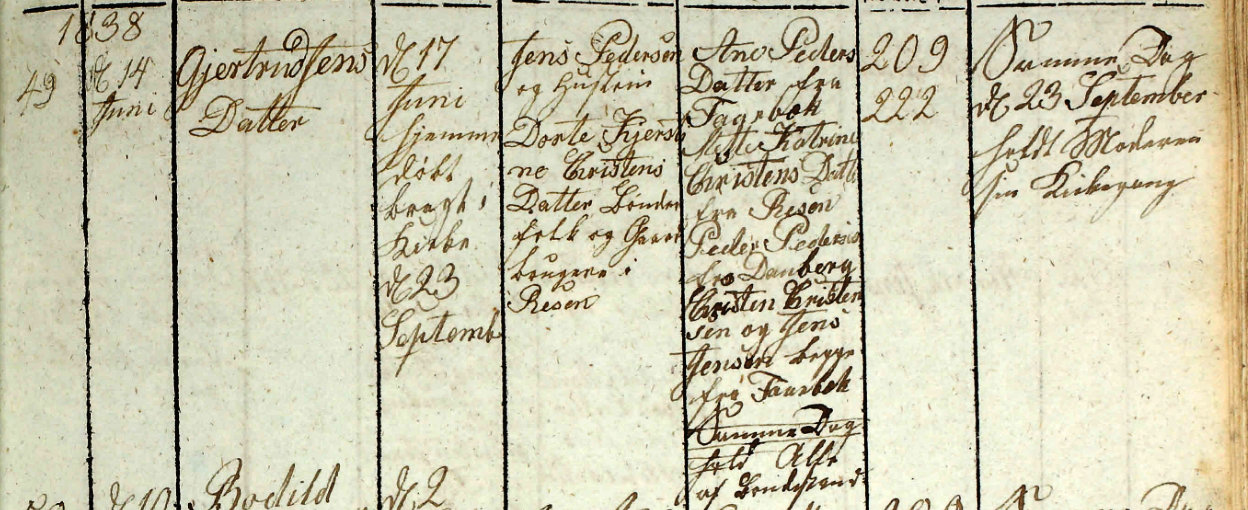 1838
49
d 14
Juni
Gjertrud Jens
Datter
d 17
Juni
hjemme
døbt
bragt i
Kirke
d 23
Septemb
Jens Pedersen
og Hustru
Dorte Kjersti
ne Christens
Datter Bonde
folk og Gaard
brugere i
Resen
Ane Peders
Datter fra
Fagrbek
Mette Katrine
Christens Datt
fra Resen
Peder Pedersen
fra Danberg
Christen Christen
sen og Jens
Jensen begge
fra Faarbek
Samme Dag
hold Alle
af Bondestand
209
222
Samme Dag
d 23 September
holdt Moderen
sin Kirkegang
d 10
Bodild
d 2